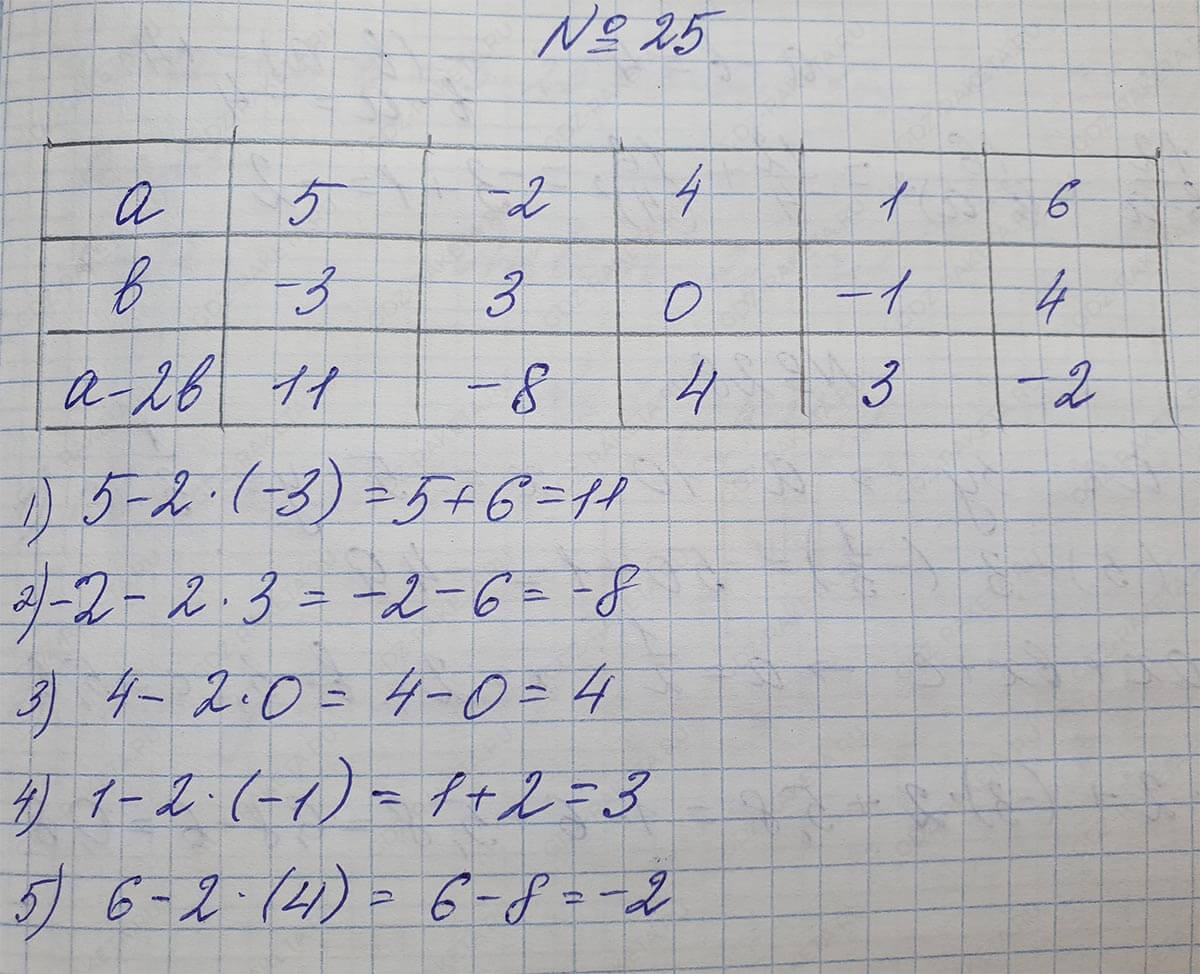 № 25
a 5 -2 4 1 6
в -3 3 0 -1 4
a-2в 11 -8 4 3 -2
1) 5-2·(-3)=5+6=11
2) -2-2·3=-2-6=-8
3) 4-2·0=4-0=4
4) 1-2·(-1)=1+2=3
5) 6-2·(4)=6-8=-2